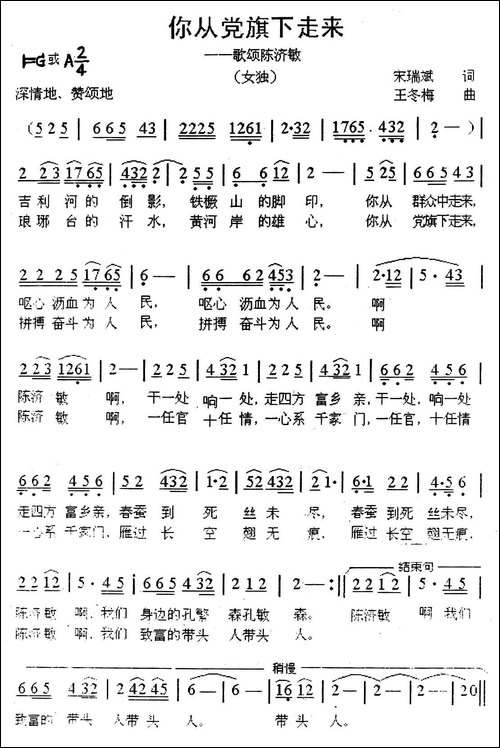 你从党旗下走来
——歌颂陈济敏
（女独）
G或A 2/4
宋瑞斌 词
深情地、赞颂地
王冬梅 曲
(525 | 665 43 | 2225 1261 | 2·32 | 1765 432 | 2—) |
2 23 1765 | 432 2 | 255 6 6 12 | 2— | 525 | 66543 |
吉利 河的 倒影， 铁橛 山的脚 印， 你从 群众中走来，
琅琊 台的 汗水， 黄河 岸的雄 心， 你从 党旗下走来，
2 2 2 5 1765 | 6— | 66 62 453 | 2— | 2·12 | 5·43 |
呕心 沥血为 人 民， 呕心 沥血为人 民。 啊
拼搏 奋斗为 人 民， 拼搏 奋斗为人 民。 啊
223 1261 | 2— | 225 4321 | 225 4321 | 662 456 |
陈济 敏 啊， 干一处 响一 处，走四方 富乡 亲，干一处，响一处
陈济 敏 啊， 一任官 十任 情，一心系 千家 门，一任官，十任情
662 456 | 52 432 | 01 25 | 221 | 6·1 22 | 4·56 |
走四方 富乡亲，春蚕 到 死 丝未 尽， 春蚕 到死 丝未尽，
一心系 千家门，雁过 长 空 翅无 痕， 雁过 长空 翅无痕。
22 12 | 5·45 | 665 432 | 2245 6 | 2— :‖ 结束句 2212 | 5·45 |
陈济敏 啊，我们 身边的孔繁 森孔敏 森。 陈济敏 啊我们
陈济敏 啊，我们 致富的带头 人带头 人。
稍慢
665 432 | 2 42 45 | 6— | 6— | 1612 | 2— | 2— | 2— | 20 ‖
致富的 带头 人带 头 人。 带头 人。